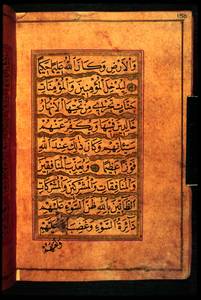 وَالْأَرْضِ وَكَانَ اللَّهُ عَلِيمًا حَكِيمًا
لِيُدْخِلَ الْمُؤْمِنِينَ وَالْمُؤْمِنَاتِ
جَنَّاتٍ تَجْرِي مِنْ تَحْتِهَا الْأَنْهَارُ
خَالِدِينَ فِيهَا وَيُكَفِّرَ عَنْهُمْ
سَيِّئَاتِهِمْ وَكَانَ ذَلِكَ عِنْدَ اللَّهِ
فَوْزًا عَظِيمًا وَيُعَذِّبَ الْمُنَافِقِينَ
وَالْمُنَافِقَاتِ وَالْمُشْرِكِينَ وَالْمُشْرِكَاتِ
الظَّانِّينَ بِاللَّهِ ظَنَّ السَّوْءِ عَلَيْهِمْ
دَائِرَةُ السَّوْءِ وَغَضِبَ اللَّهُ عَلَيْهِمْ
وَلَعَنَهُمْ